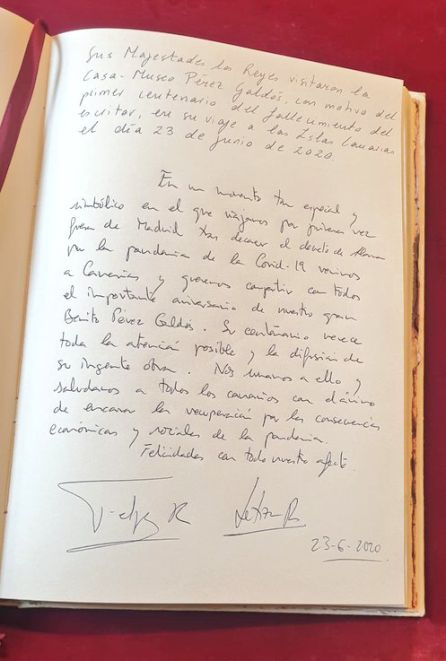 Sus Majestades los Reyes visitaron la
Casa-Museo Pérez Galdós, con motivo del
primer centenario del fallecimiento del
escritor, en su viaje a las Islas Canarias
el día 23 de junio de 2020.
En un momento tan especial y
simbólico en el que viajamos por primera vez
fuera de Madrid tras decaer el decreto de alarma
por la pandemia de la Covid-19 venimos
a Canarias y queremos compartir con todos
el importante aniversario de nuestro gran
Benito Pérez Galdós. Su centenario merece
toda la atención posible y la difusión de
su ingente obra. Nos unamos a ello y
saludamos a todos los canarios con el ánimo
de encarar la recuperación por las consecuencias
económicas y sociales de la pandemia.
Felicidades con todo nuestro afecto.
Felipe R Letizia R
23-6-2020